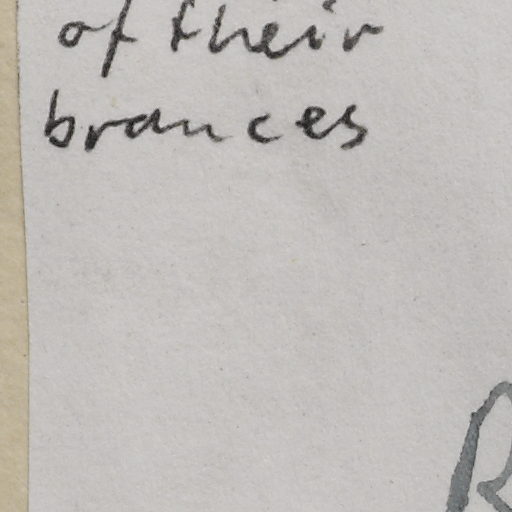 of their
brances
R